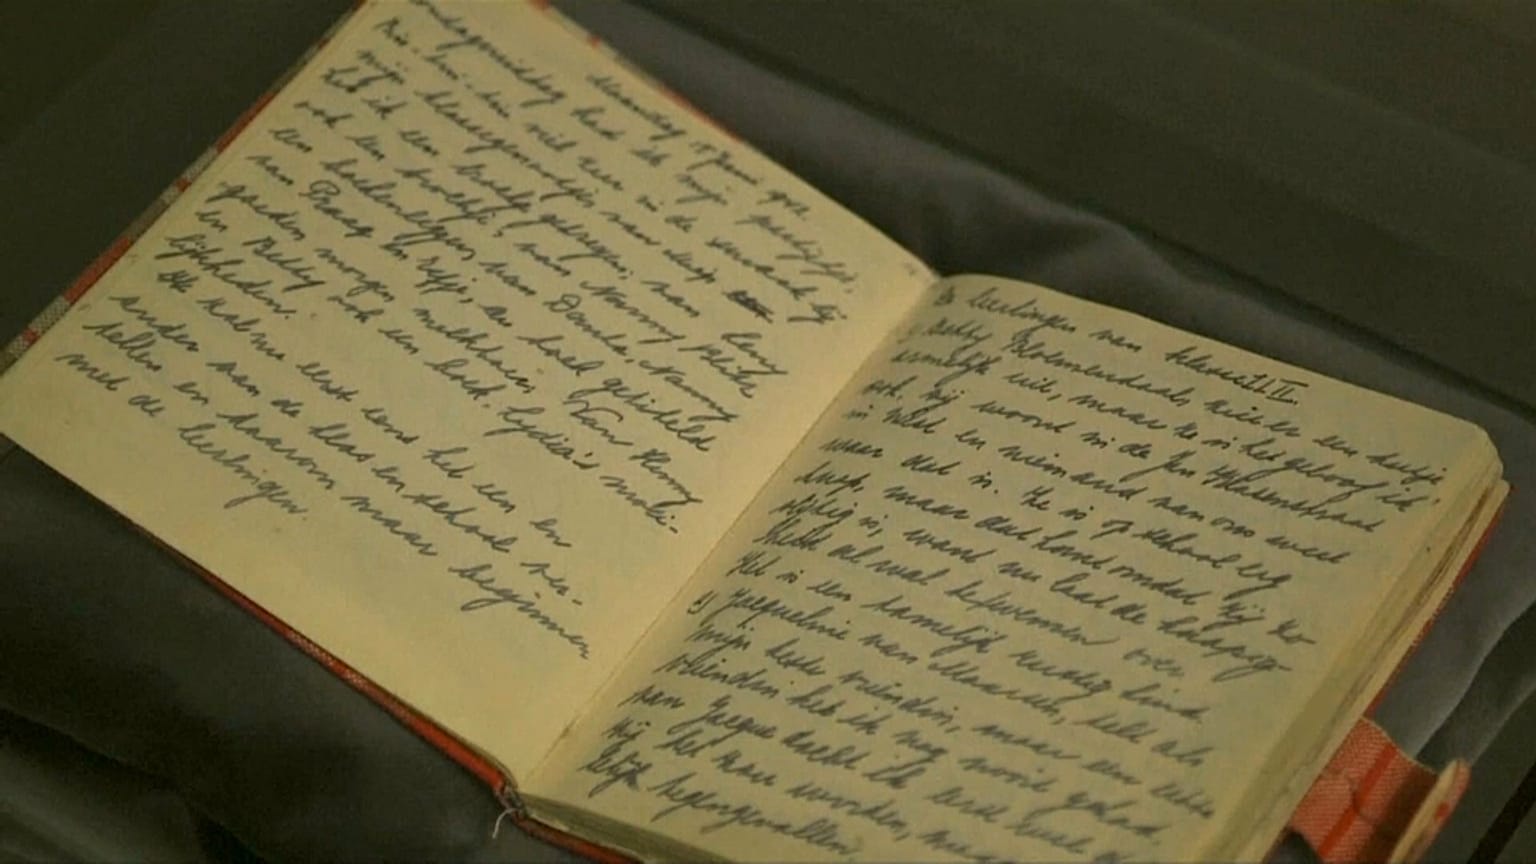 Maandag 15 Juni 1942
ondagmiddag had ik mijn partijtje,
Rin-tin-tin viel zeer in de smaak bij
mijn klasgenootjes van
heb ik een broche gekregen, van Leny
ook een broche, van Nanny
een boekenlegger van Danka, Nanny
van Praag en Eefje, en heel
goeden morgen melkboer, Van Henny
en Betty ook een boek. Lydia's
lijkheden.
Ik zal nu eerst eens het een en
ander van de klas en school ver-
tellen en daarom maar beginnen
met de leerlingen.
De leerlingen van klasse 1 L II.
Betty Bloemendaal, ziet er een beetje
armelijk uit, maar ze is het geloof ik
ook, zij woont in de Jan Klasenstraat
in West en niemand van ons weet
waar dat is. Ze is op school erg
knap, maar dat komt omdat zij zo
vlijtig is, want nu laat de knappig-
heid al wat te wensen over.
Het is een tamelijk rustig kind.
Jacqueline van Maarsen, geldt als
mijn beste vriendin, maar een echte
vriendin heb ik nog nooit gehad.
van Jacque dacht ik eerst
zij het zou worden,
lelijk tegengevallen.